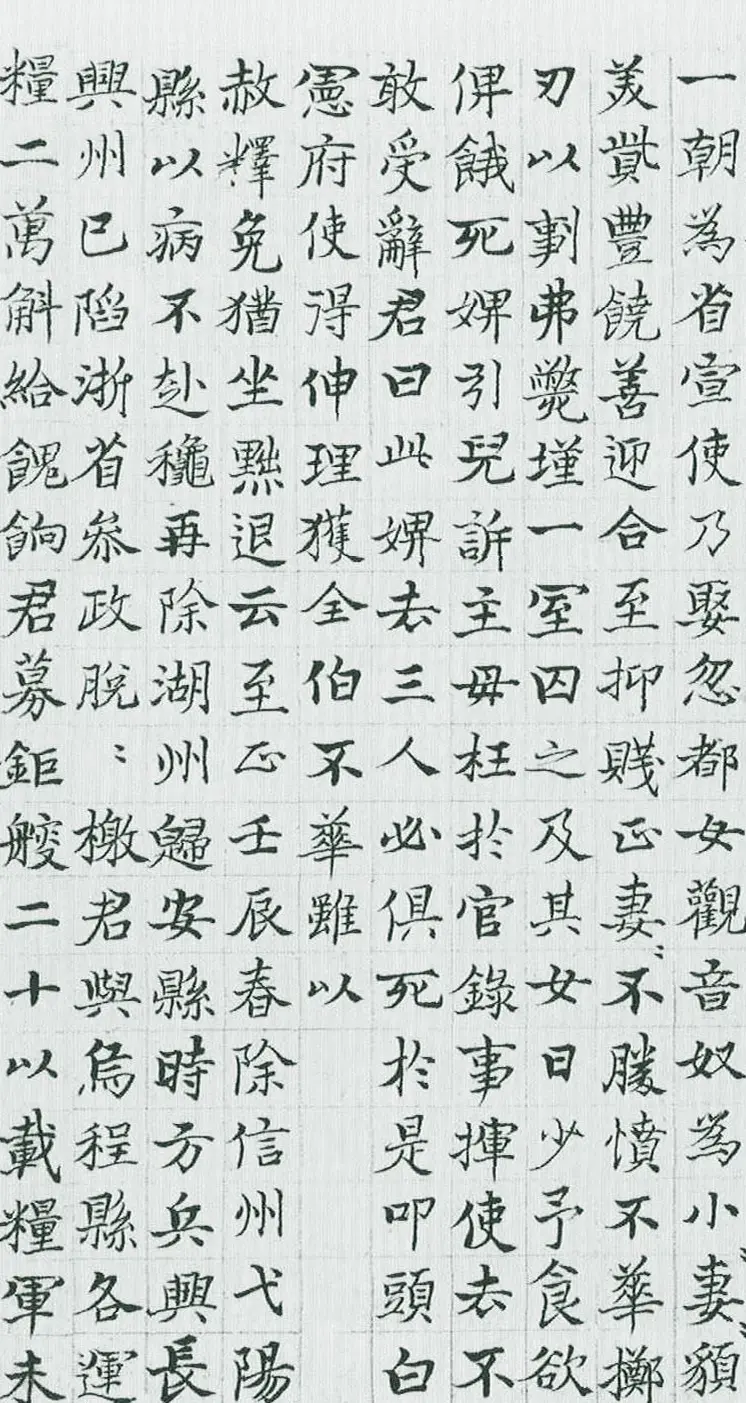 一朝為省宣使乃娶忽都女觀音奴為小妻〻㒵
美貲豐饒善迎合至抑賤正妻〻不勝憤不華擲
刃以剚弗斃墐一室囚之及其女日少予食欲
俾餓死婢引兒訴主毋枉於官錄事揮使去不
敢受辭君曰此婢去三人必俱死於是叩頭白
憲府使得伸理獲全伯不華雖以
赦釋免猶坐黜退云至正壬辰春除信州弋陽
縣以病不赴龝再除湖州歸安縣時方兵興長
興州已陷浙省叅政脫〻檄君與烏程縣各運
糧二萬斛給餽餉君募鉅艘二十以載糧軍未